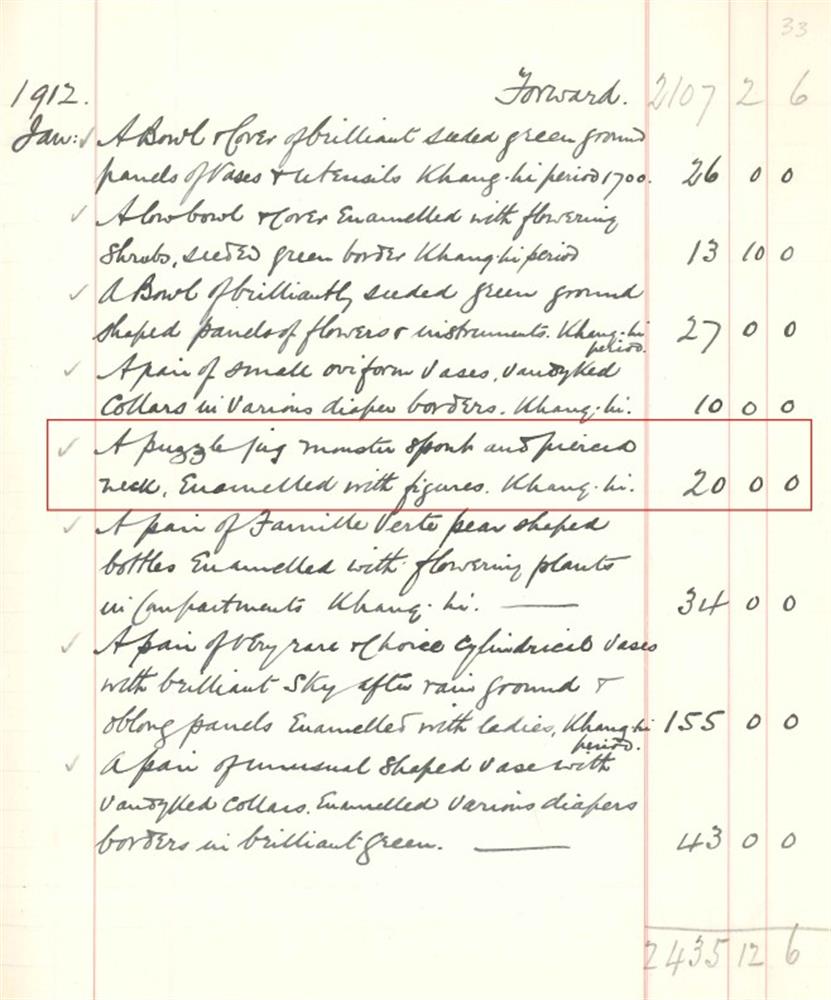 33
1912. Forward. 2107 2 6
Jan: ✓ A Bowl & Cover of brilliant seeded green ground
panels of Vases & Utensils Khang-hi period 1700. 26 0 0
✓ A low bowl & Cover Enamelled with flowering
Shrubs, seeded green border Khang-hi period 13 10 0
✓ A Bowl of brilliantly seeded green ground
shaped panels of flowers & instruments. Khang-hi period. 27 0 0
✓ A pair of small oviform Vases, Vandyked
Collars in Various diaper borders. Khang-hi. 10 0 0
✓ A puzzle jug monster spout and pierced
neck, Enamelled with figures. Khang-hi. 20 0 0
✓ A pair of Famille Verte pear shaped
bottles Enamelled with flowering plants
in Compartments Khang-hi. — 34 0 0
✓ A pair of very rare & Choice Cylindrical Vases
with brilliant Sky after rain ground &
oblong panels Enamelled with ladies, Khang-hi period. 155 0 0
✓ A pair of unusual shaped Vase with
Vandyked Collars. Enamelled Various diapers
borders in brilliant green. — 43 0 0
2435 12 6